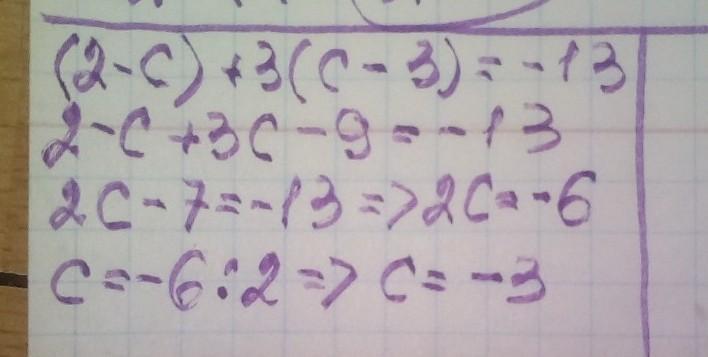 (2-c)+3(c-3)=-13
2-c+3c-9=-13
2c-7=-13=>2c=-6
c=-6:2=>c=-3